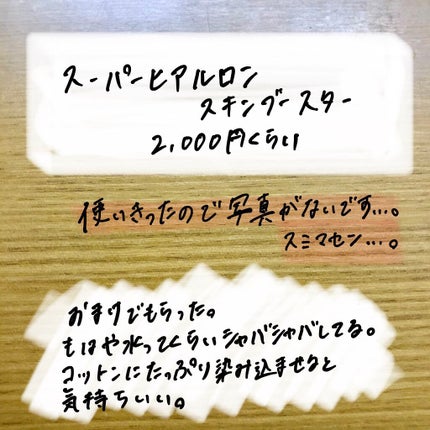 スーパーヒアルロン
スキンブースター
2,000円くらい
使いきったので写真がないです…。
スミマセン…。
おまけでもらった。
もはや水ってくらいシャバシャバしてる。
コットンにたっぷり染み込ませると
気持ちいい。